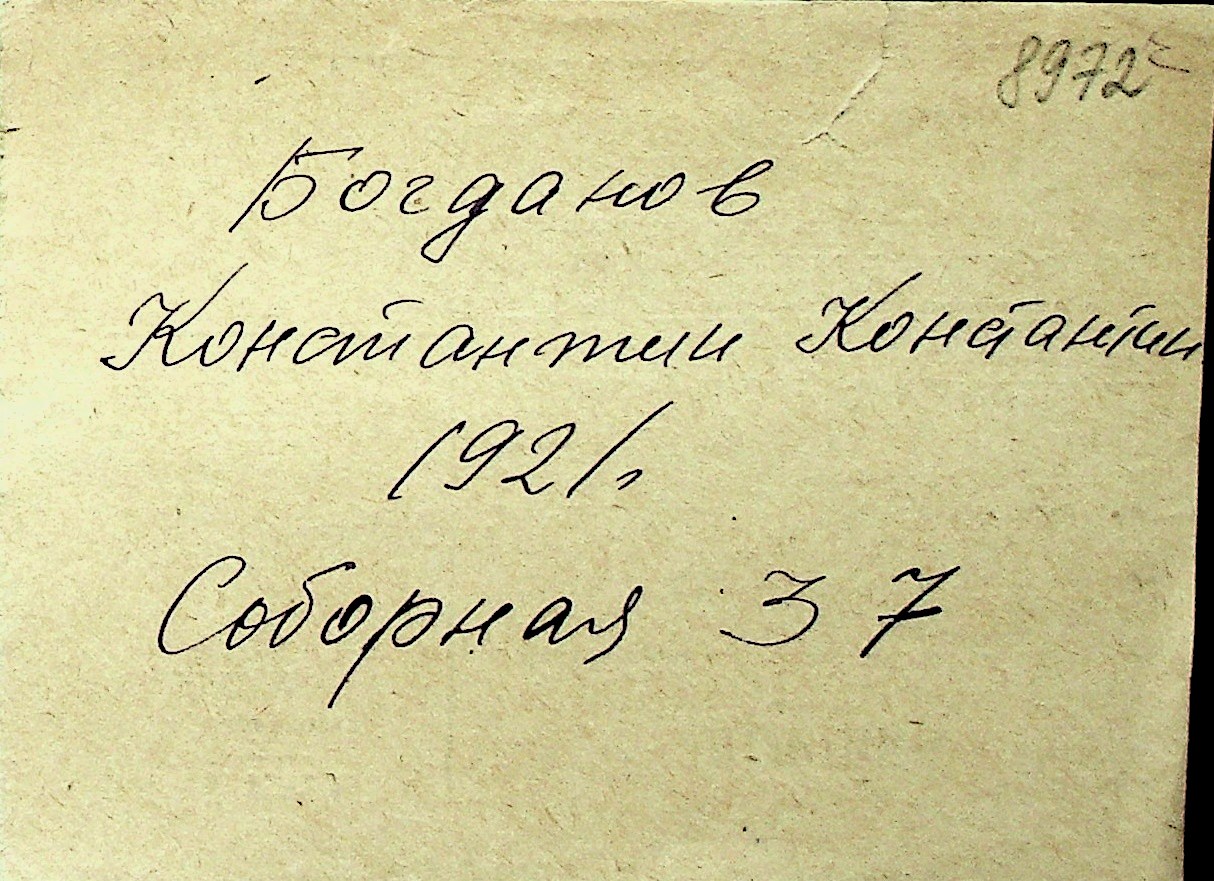 8972
Богданов
Константин Константин
1921г.
Соборная 37